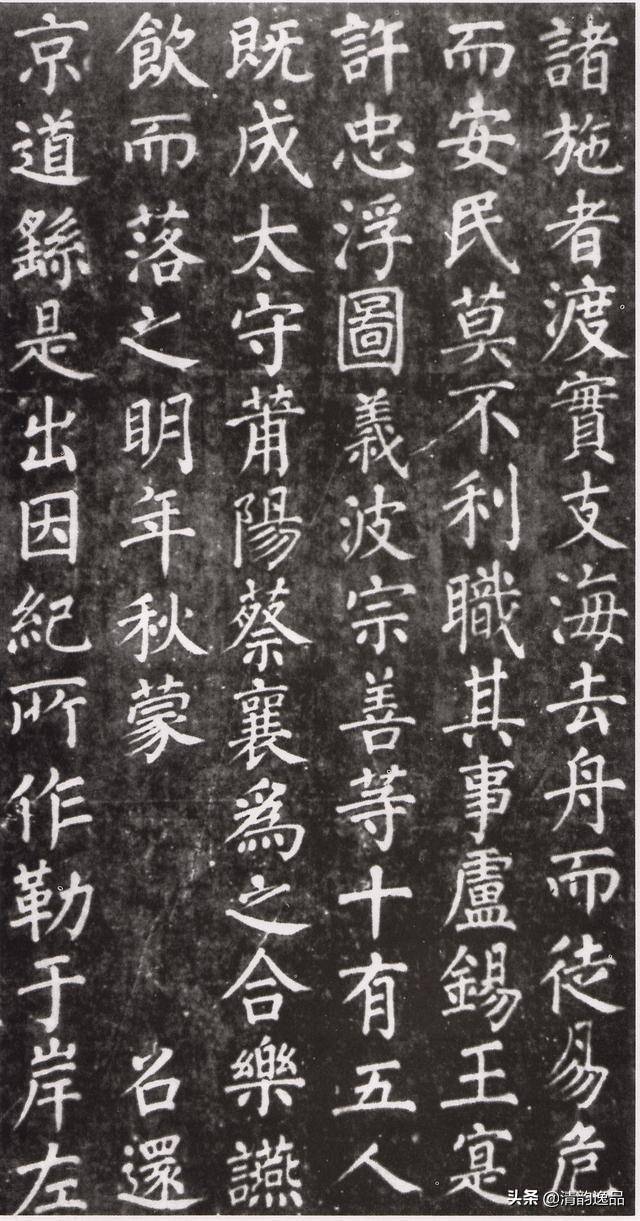 諸施者渡實支海去舟而徒易危
而安民莫不利職其事盧錫王寔
許忠浮圖義波宗善等十有五人
既成太守莆陽蔡襄爲之合樂讌
飲而落之明年秋蒙 召還
京道繇是出因紀所作勒于岸左
头条 @清韵逸品